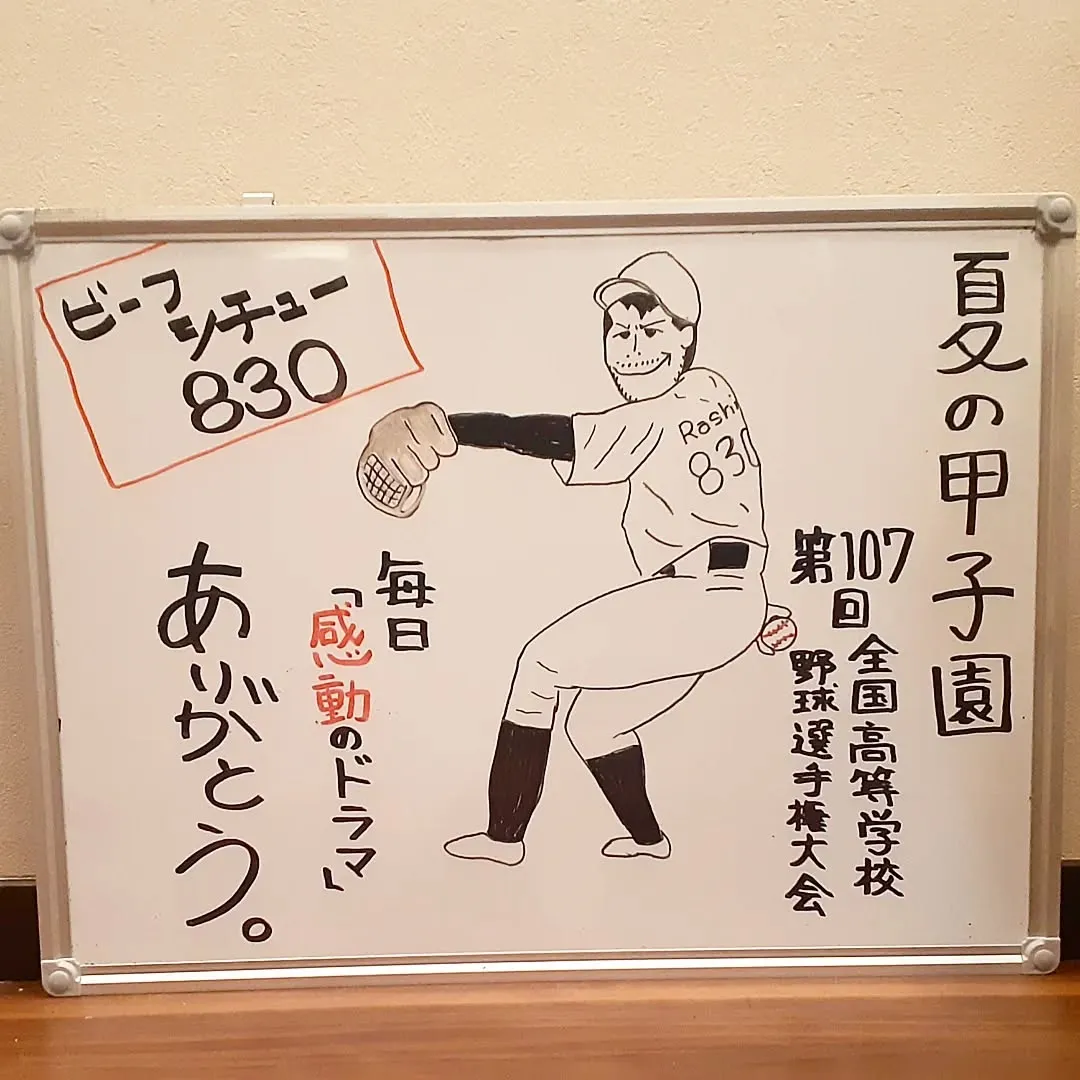 夏の甲子園
第107回
全国高等学校
野球選手権大会
Rashi
830
毎日
「感動のドラマ」
ありがとう。
ビーフ
シチュー
830